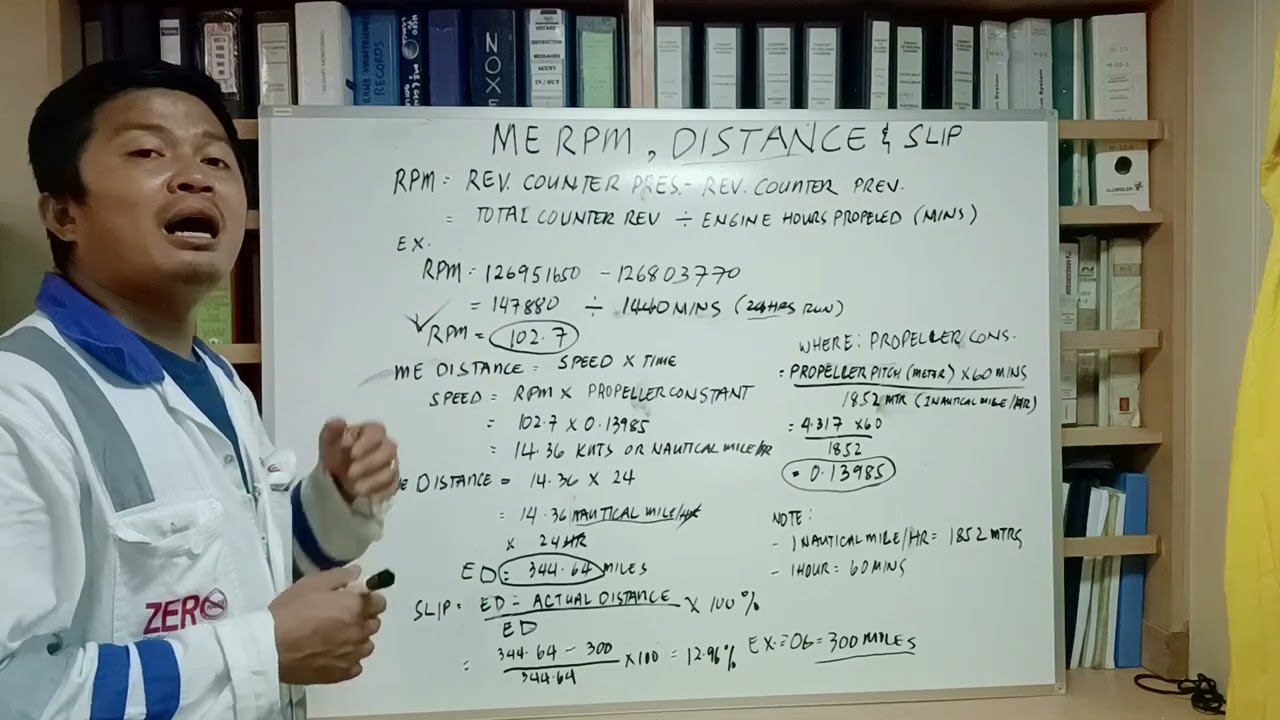 NOXE
VOYAGE
INSTRUCTION
MESSAGES
AGENT
IN / OUT
RECORDS
ME RPM, DISTANCE & SLIP
RPM = REV. COUNTER PRES. - REV. COUNTER PREV.
= TOTAL COUNTER REV ÷ ENGINE HOURS PROPELED (MINS)
EX.
RPM = 126951650 - 126803770
= 147880 ÷ 1440 MINS (24HRS RUN)
RPM = 102.7
ME DISTANCE = SPEED X TIME
SPEED = RPM X PROPELLER CONSTANT
= 102.7 X 0.13985
= 14.36 KNTS OR NAUTICAL MILE/HR
DISTANCE = 14.36 X 24
= 14.36 NAUTICAL MILE/HR
X 24HR
ED = 344.64 MILES
SLIP = ED - ACTUAL DISTANCE X 100%
ED
= 344.64 - 300 X100 = 12.96%
344.64
EX. = OG = 300 MILES
WHERE: PROPELLER CONS.
= PROPELLER PITCH (METER) X 60 MINS
1852 MTR (1NAUTICAL MILE/HR)
= 4.317 X60
1852
= 0.13985
NOTE:
- 1 NAUTICAL MILE/HR = 1852 MTRS
- 1HOUR = 60 MINS
ZERO